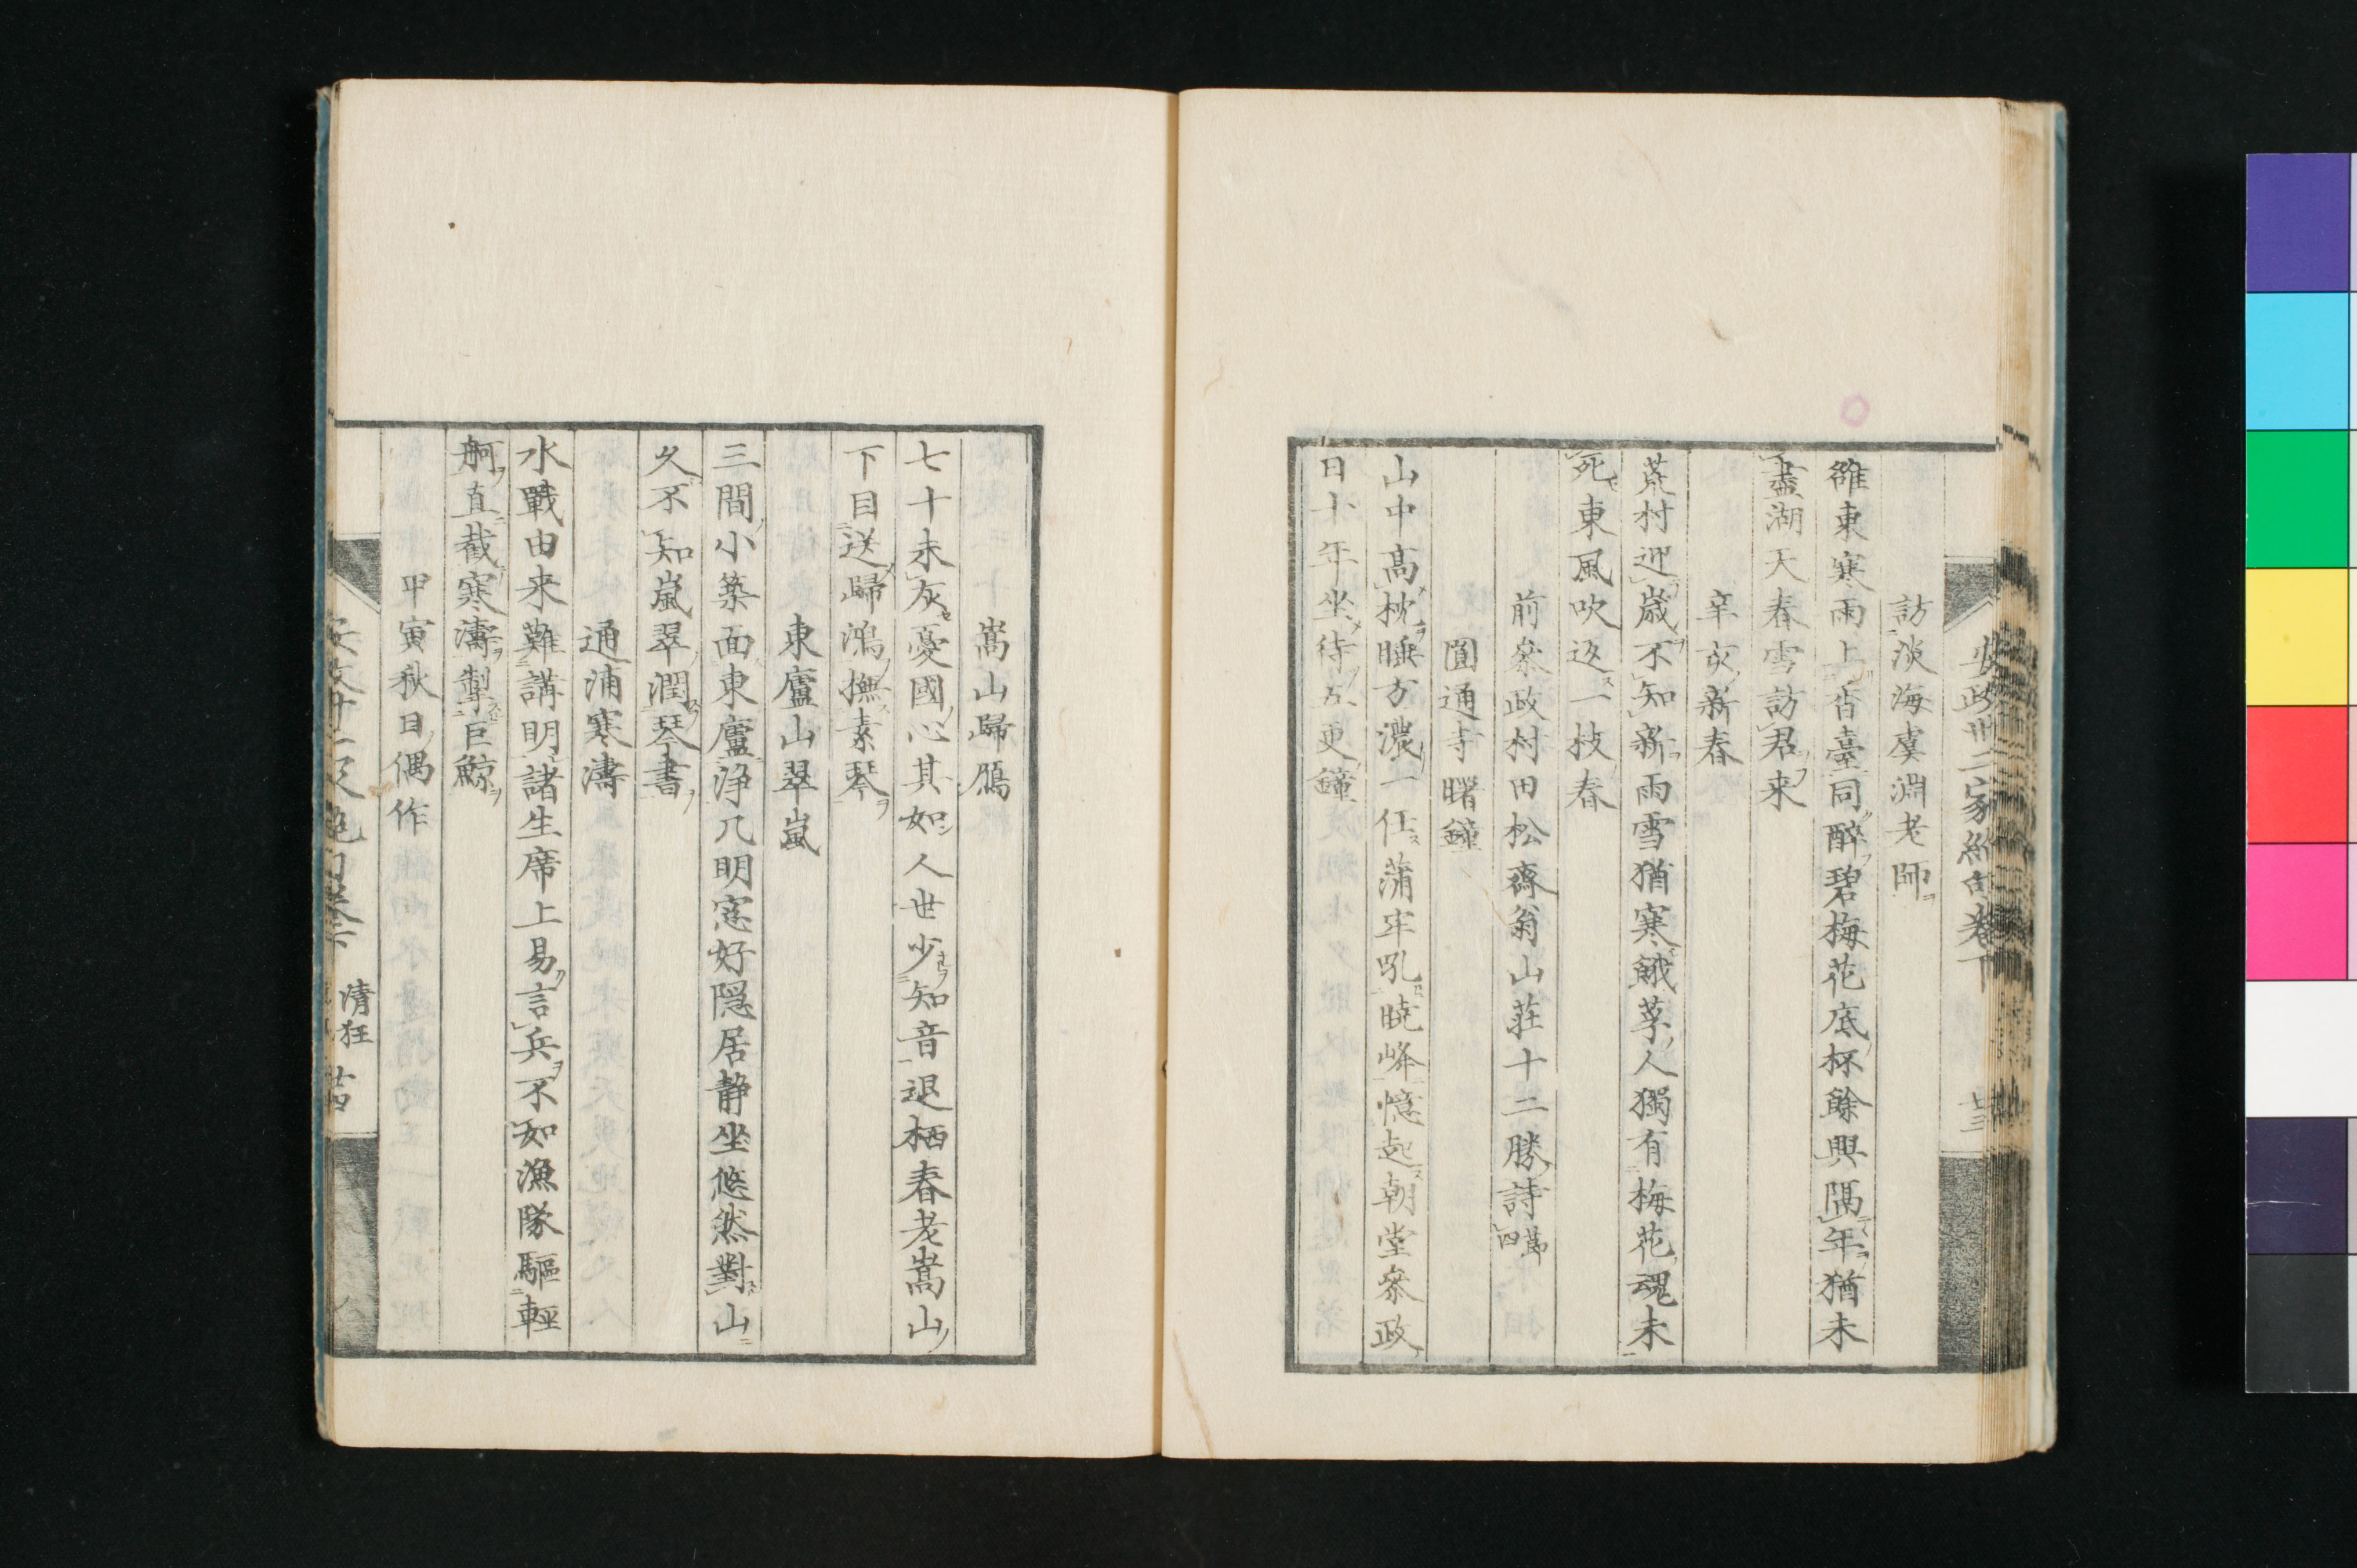 訪淡海虞淵老師
雒東寒雨上香臺同醉碧梅花底杯餘興隔年猶未
盡湖天春雪訪君来
辛亥新春
荒村迎歳不知新雨雪猶寒餓莩人獨有梅花魂未
死東風吹返一枝春
前参政村田松齋翁山莊十二勝詩
圓通寺曙鐘
山中高枕睡方濃一任蒲牢吼曉峰憶起朝堂参政
日十年坐待五更鐘
嵩山歸鴈
七十未灰憂國心其如人世少知音退栖春老嵩山
下目送歸鴻撫素琴
東廬山翠嵐
三間小築面東廬浄几明窓好隠居静坐悠然對山
久不知嵐翠潤琴書
通浦寒濤
水戰由来難講明諸生席上易言兵不如漁隊驅輕
舸直截寒濤掣巨鯨
甲寅秋日偶作
清狂